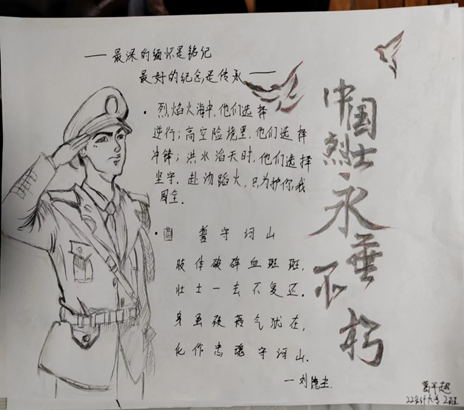 —— 最深的缅怀是铭记
最好的纪念是传承 ——
· 烈焰火海中,他们选择
逆行;高空险境里,他们选择
冲锋;洪水滔天时,他们选择
坚守。赴汤蹈火,只为护你我
周全.
· 誓守河山
肢体破碎血斑斑,
壮士一去不复还.
身虽 气犹在,
化作忠魂守河山.
—刘
中国
烈士
永
垂
不
朽
22会计大专2班